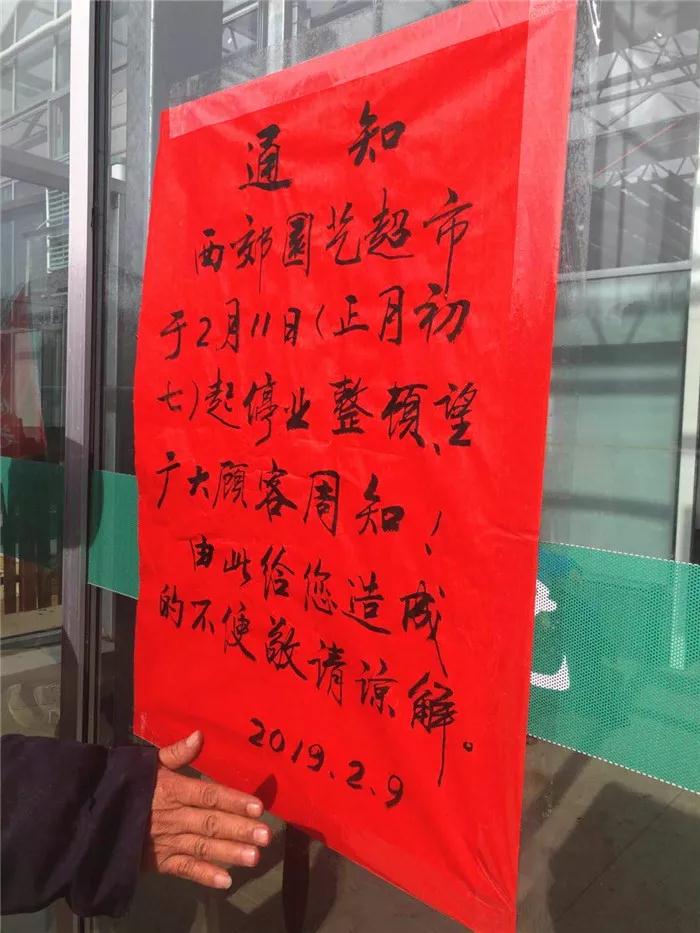 通知
西郊园艺超市
于2月11日(正月初
七)起停业整顿,望
广大顾客周知!
由此给您造成
的不便敬请谅解。
2019.2.9